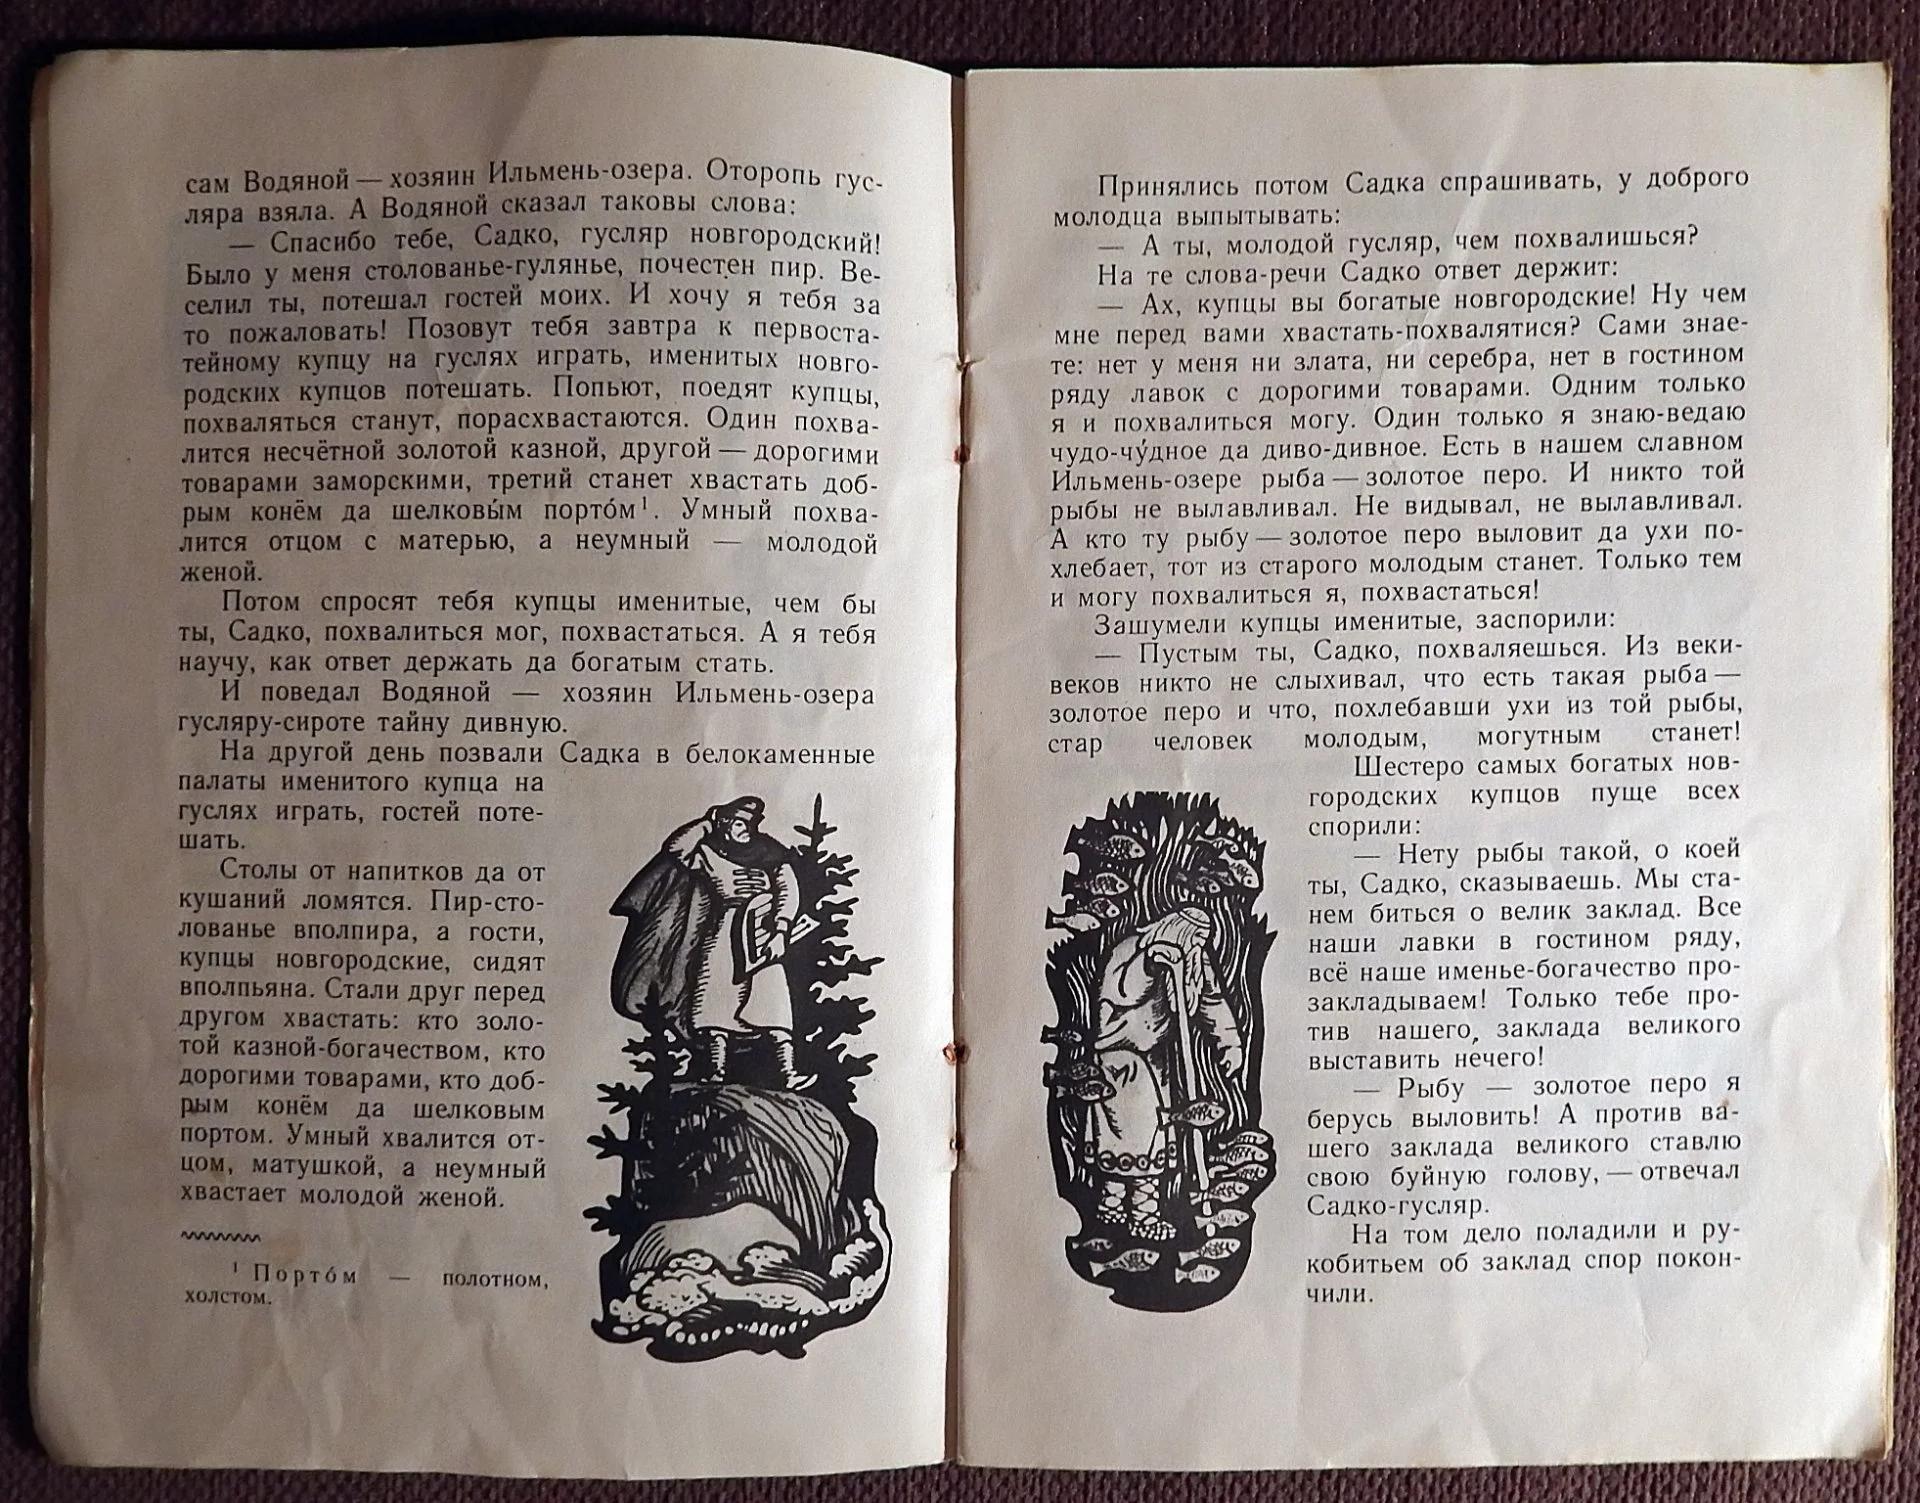 сам Водяной — хозяин Ильмень-озера. Оторопь гус-
ляра взяла. А Водяной сказал таковы слова:
— Спасибо тебе, Садко, гусляр новгородский!
Было у меня столованье-гулянье, почестен пир. Ве-
селил ты, потешал гостей моих. И хочу я тебя за
то пожаловать! Позовут тебя завтра к первоста-
тейному купцу на гуслях играть, именитых новго-
родских купцов потешать. Попьют, поедят купцы,
похваляться станут, порасхвастаются. Один похва-
лится несчётной золотой казной, другой — дорогими
товарами заморскими, третий станет хвастать доб-
рым конём да шелковы́м порто́м¹. Умный похва-
лится отцом с матерью, а неумный — молодой
женой.
Потом спросят тебя купцы именитые, чем бы
ты, Садко, похвалиться мог, похвастаться. А я тебя
научу, как ответ держать да богатым стать.
И поведал Водяной — хозяин Ильмень-озера
гусляру-сироте тайну дивную.
На другой день позвали Садка в белокаменные
палаты именитого купца на
гуслях играть, гостей поте-
шать.
Столы от напитков да от
кушаний ломятся. Пир-сто-
лованье вполпира, а гости,
купцы новгородские, сидят
вполпьяна. Стали друг перед
другом хвастать: кто золо-
той казной-богачеством, кто
дорогими товарами, кто доб-
рым конём да шелковым
портом. Умный хвалится от-
цом, матушкой, а неумный
хвастает молодой женой.
¹ Порто́м — полотном,
холстом.
Принялись потом Садка спрашивать, у доброго
молодца выпытывать:
— А ты, молодой гусляр, чем похвалишься?
На те слова-речи Садко ответ держит:
— Ах, купцы вы богатые новгородские! Ну чем
мне перед вами хвастать-похвалятися? Сами знае-
те: нет у меня ни злата, ни серебра, нет в гостином
ряду лавок с дорогими товарами. Одним только
я и похвалиться могу. Один только я знаю-ведаю
чудо-чу́дное да диво-дивное. Есть в нашем славном
Ильмень-озере рыба — золотое перо. И никто той
рыбы не вылавливал. Не видывал, не вылавливал.
А кто ту рыбу — золотое перо выловит да ухи по-
хлебает, тот из старого молодым станет. Только тем
и могу похвалиться я, похвастаться!
Зашумели купцы именитые, заспорили:
— Пустым ты, Садко, похваляешься. Из веки-
веков никто не слыхивал, что есть такая рыба —
золотое перо и что, похлебавши ухи из той рыбы,
стар человек молодым, могутным станет!
Шестеро самых богатых нов-
городских купцов пуще всех
спорили:
— Нету рыбы такой, о коей
ты, Садко, сказываешь. Мы ста-
нем биться о велик заклад. Все
наши лавки в гостином ряду,
всё наше именье-богачество про-
закладываем! Только тебе про-
тив нашего заклада великого
выставить нечего!
— Рыбу — золотое перо я
берусь выловить! А против ва-
шего заклада великого ставлю
свою буйную голову, — отвечал
Садко-гусляр.
На том дело поладили и ру-
кобитьем об заклад спор покон-
чили.